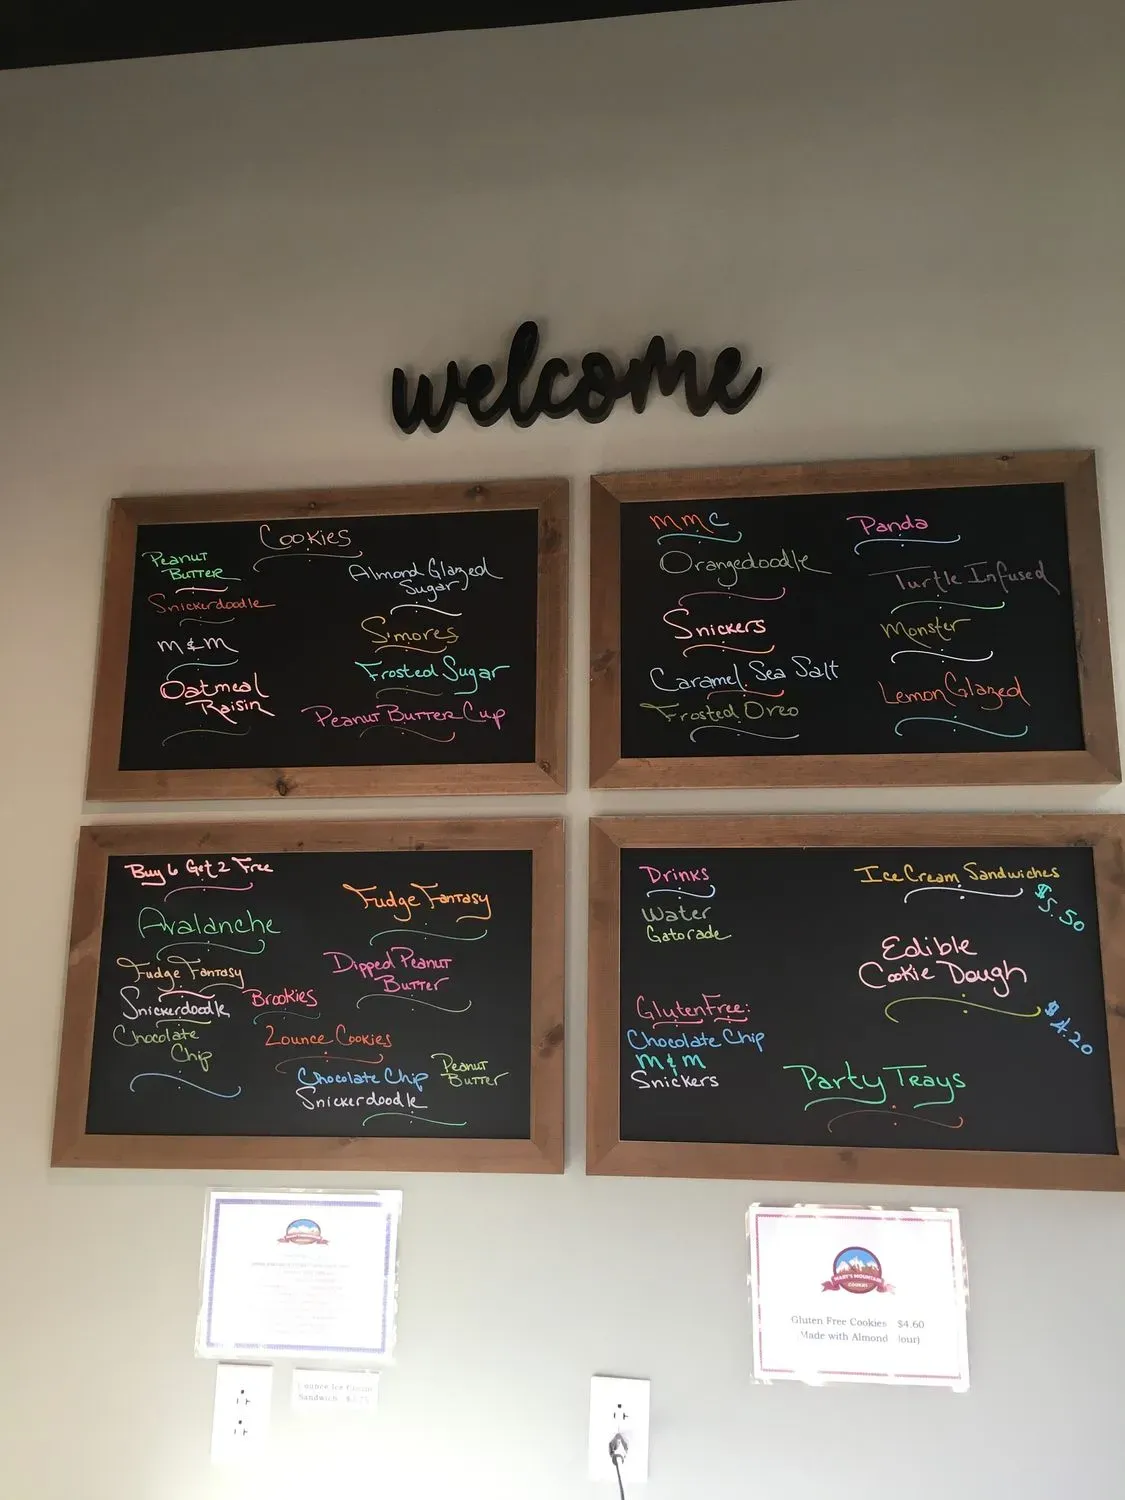 welcome
Cookies
Peanut
Butter
Snickerdoodle
m & m
Oatmeal
Raisin
Almond Glazed
Sugar
S'mores
Frosted Sugar
Peanut Butter Cup
MMC
Orangedoodle
Snickers
Caramel Sea Salt
Frosted Oreo
Panda
Turtle Infused
Monster
Lemon Glazed
Buy 6 Get 2 Free
Avalanche
Fudge Fantasy
Snickerdoodle
Chocolate
Chip
Brookies
Fudge Fantasy
Dipped Peanut
Butter
2ounce Cookies
Chocolate Chip
Snickerdoodle
Peanut
Butter
Drinks
Water
Gatorade
Gluten Free:
Chocolate Chip
m & m
Snickers
Ice Cream Sandwiches
$5.50
Edible
Cookie Dough
$4.20
Party Trays
MARY'S MOUNTAIN
COOKIES
Gluten Free Cookies $4.60
Made with Almond lour)
ounce Ice Cream
Sandwich